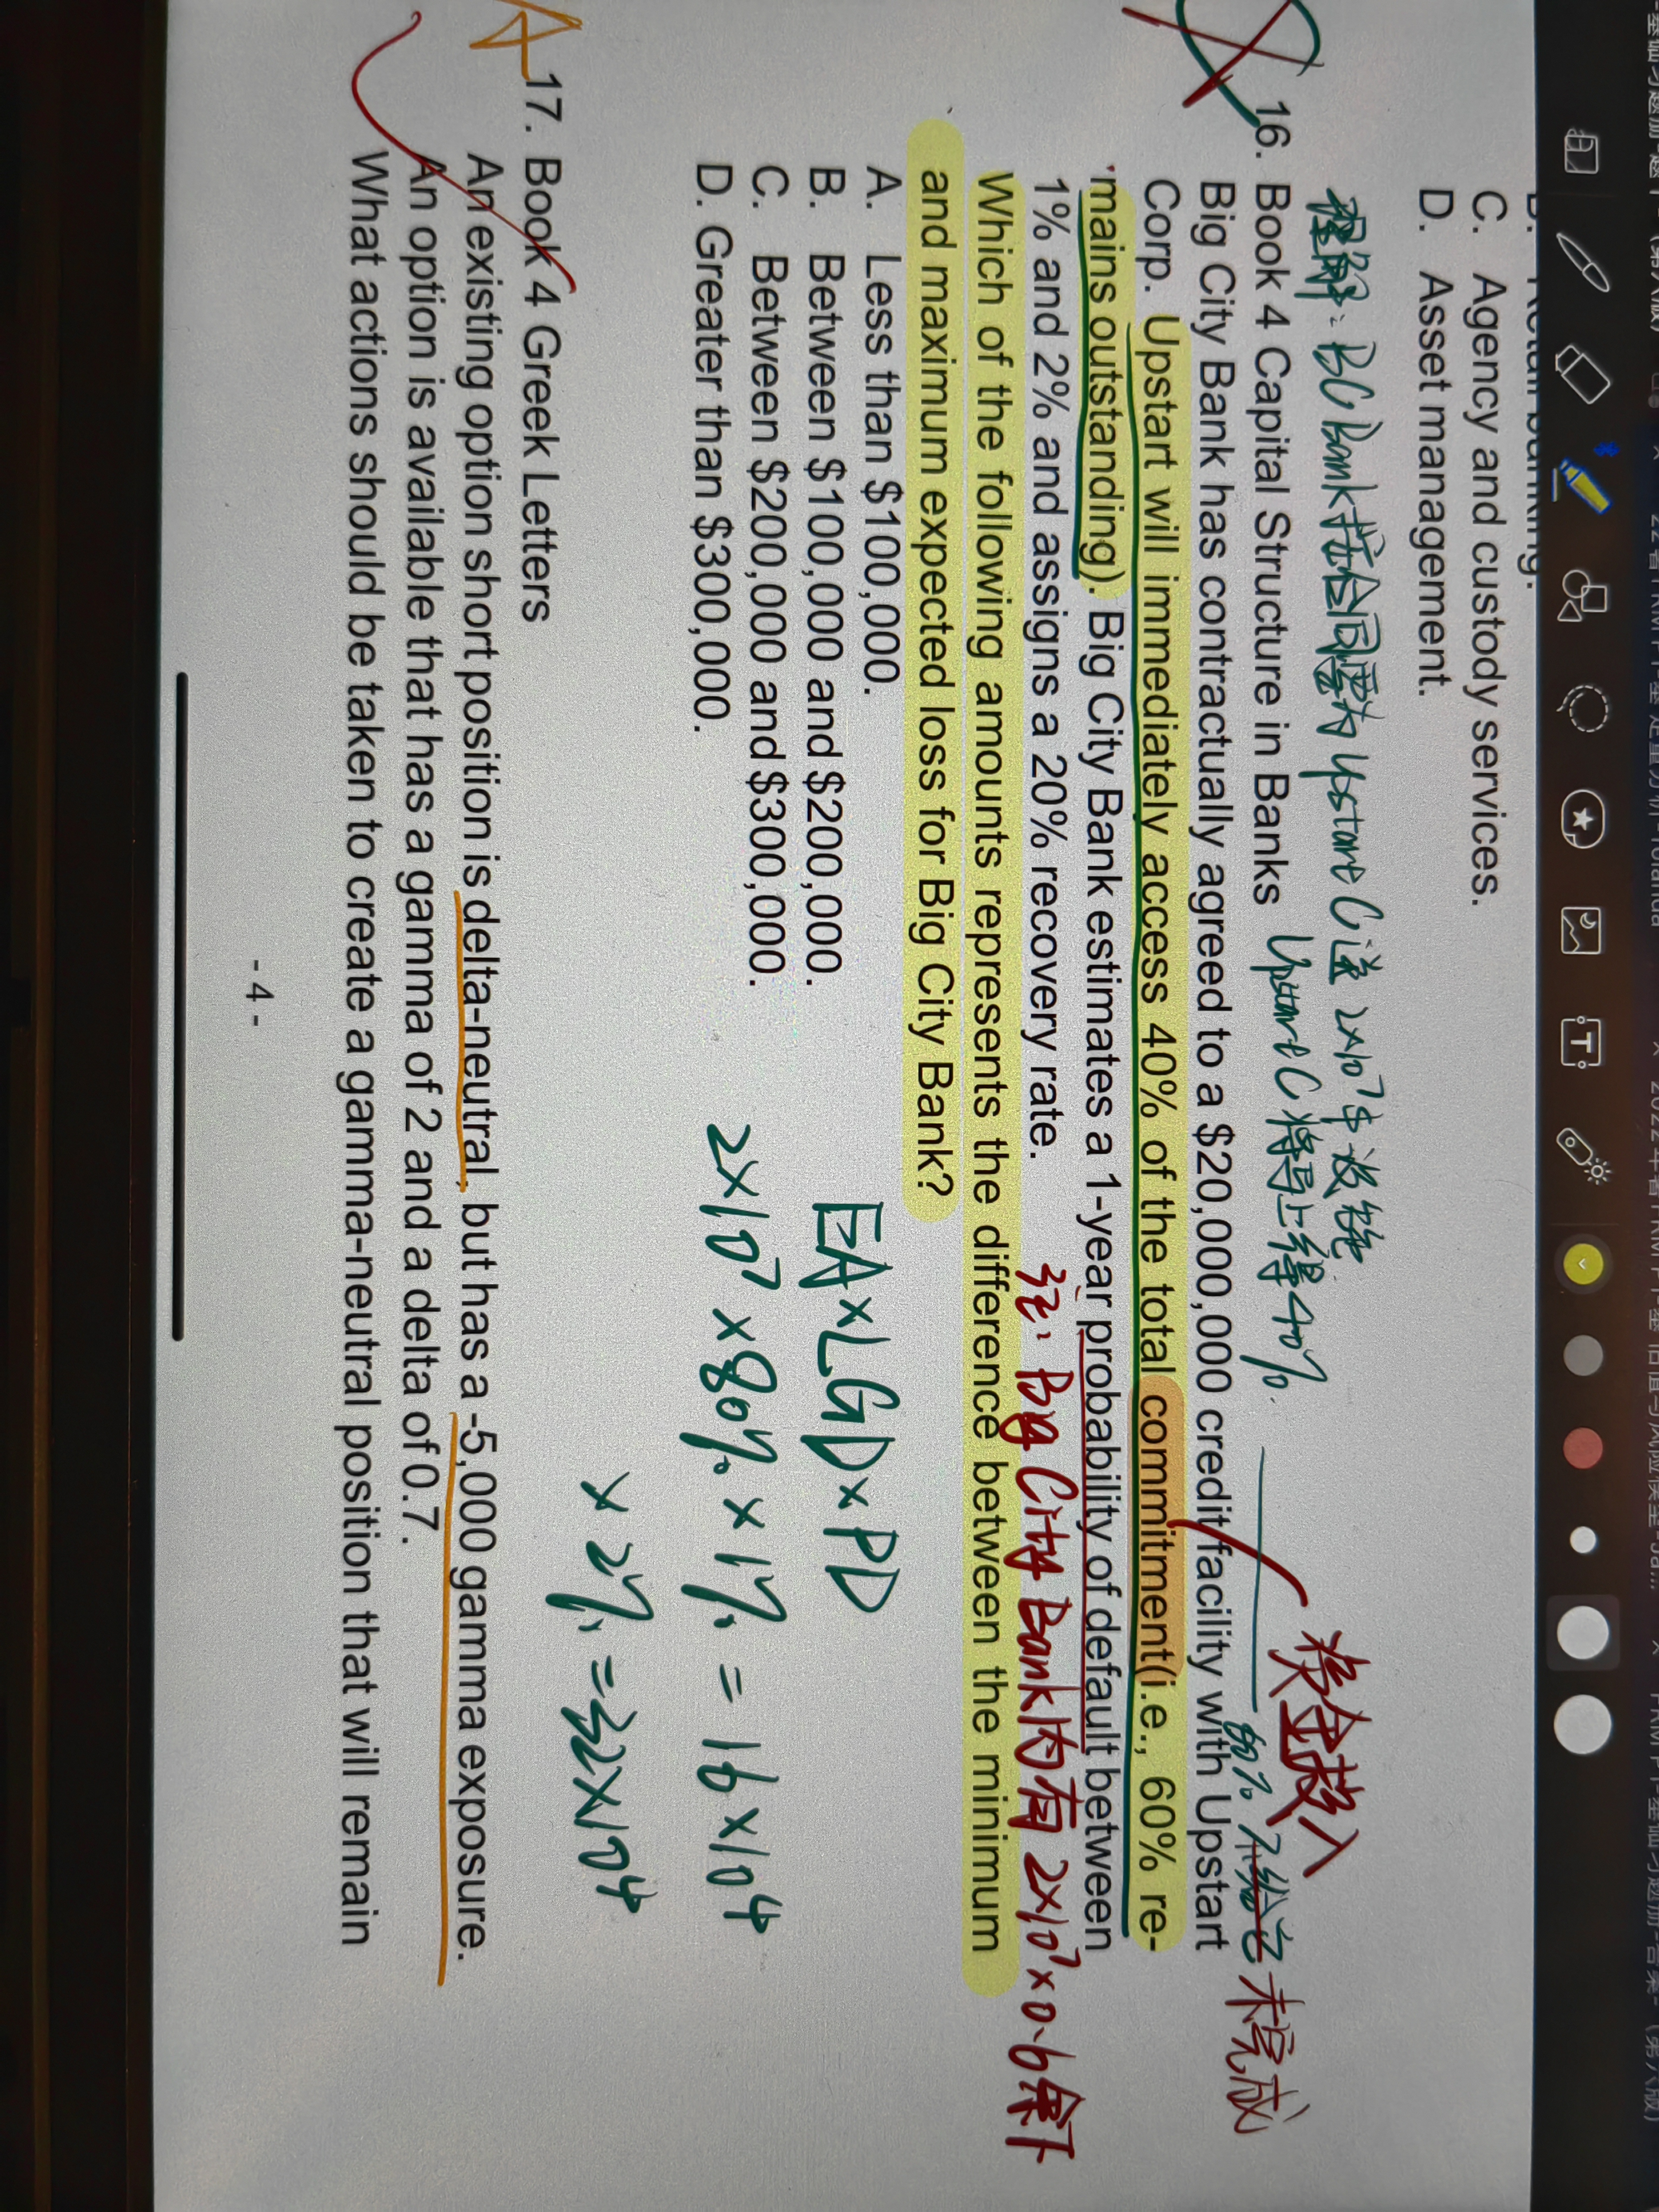 C. Agency and custody services.
D. Asset management.
理解: BC Bank 按合同需为 Upstare C 送 2×10⁷ $
16. Book 4 Capital Structure in Banks
Upstare C 将马上得 40%.
Big City Bank has contractually agreed to a $20,000,000 credit facility with Upstart
Corp. Upstart will immediately access 40% of the total commitment(i.e., 60% re-
mains outstanding). Big City Bank estimates a 1-year probability of default between
1% and 2% and assigns a 20% recovery rate.
Which of the following amounts represents the difference between the minimum
and maximum expected loss for Big City Bank?
A. Less than $100,000.
B. Between $100,000 and $200,000.
C. Between $200,000 and $300,000.
D. Greater than $300,000.
将全款
60%
未完成
Big City Bank 内有 2×10⁷×0.6 余下
EA×LGD×PD
2×10⁷×80%×1% = 16×10⁴
×2% = 32×10⁴
17. Book 4 Greek Letters
An existing option short position is delta-neutral, but has a -5,000 gamma exposure.
An option is available that has a gamma of 2 and a delta of 0.7.
What actions should be taken to create a gamma-neutral position that will remain
- 4 -